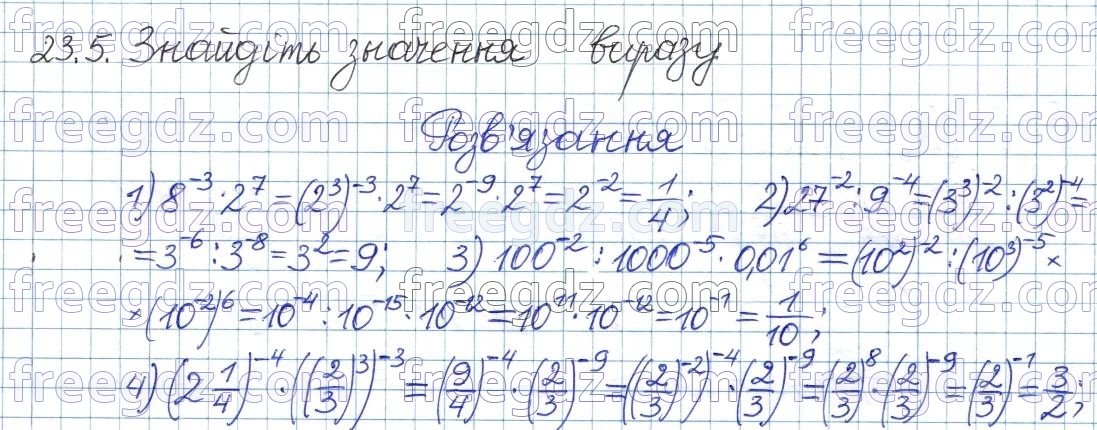 23.5. Знайдіть значення виразу
Розв'язання
1) 8⁻³ · 2⁷ = (2³)⁻³ · 2⁷ = 2⁻⁹ · 2⁷ = 2⁻² = 1/4; 2) 27⁻² : 9⁻⁴ = (3³)⁻² : (3²)⁻⁴ =
= 3⁻⁶ : 3⁻⁸ = 3² = 9; 3) 100⁻² : 1000⁻⁵ · 0,01⁶ = (10²)⁻² : (10³)⁻⁵ ×
× (10⁻²)⁶ = 10⁻⁴ : 10⁻¹⁵ · 10⁻¹² = 10¹¹ · 10⁻¹² = 10⁻¹ = 1/10;
4) (2 1/4)⁻⁴ · ((2/3)³)⁻³ = (9/4)⁻⁴ · (2/3)⁻⁹ = ((2/3)⁻²)⁻⁴ · (2/3)⁻⁹ = (2/3)⁸ · (2/3)⁻⁹ = (2/3)⁻¹ = 3/2;
freegdz.com